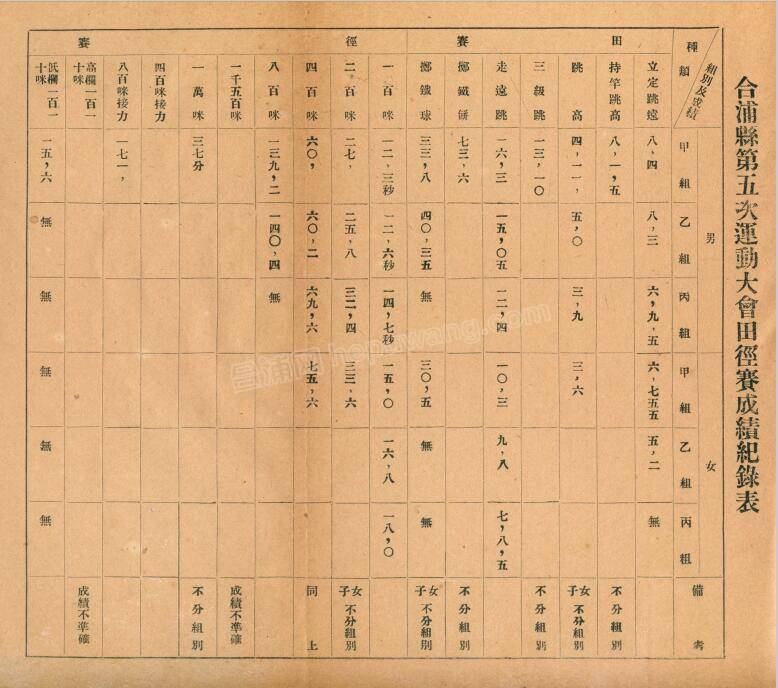 合浦縣第五次運動大會田徑賽成績紀錄表
種類 組別及成績 男 甲組 乙組 丙組 女 甲組 乙組 丙組 備考
田賽
立定跳遠 八,四 八,三 六,九,五 六,七五五 五,二 無
持竿跳高 八,一,五 不分組別
跳高 四,一一, 五,〇 三,九 三,六 女子不分組別
三級跳 一三,一〇 不分組別
走遠跳 一六,三 一五,〇五 一二,四 一〇,三 九,八 七,八,五
擲鐵餅 七三,六 不分組別
擲鐵球 三三,八 四〇,三五 無 三〇,五 無 無 女子不分組別
徑賽
一百咪 一二,三秒 一二,六秒 一四,七秒 一五,〇 一六,八 一八,〇
二百咪 二七, 二五,八 三二,四 三三,六 女子不分組別
四百咪 六〇, 六〇,二 六九,六 七五,六 同上
八百咪 一三九,二 一四〇,四 無
一千五百咪 成績不準確
一萬咪 三七分 不分組別
四百咪接力
八百咪接力 一七一,
高欄一百一十咪 成績不準確
低欄二百一十咪 一五,六 無 無 無 無 無
hepuwang.com